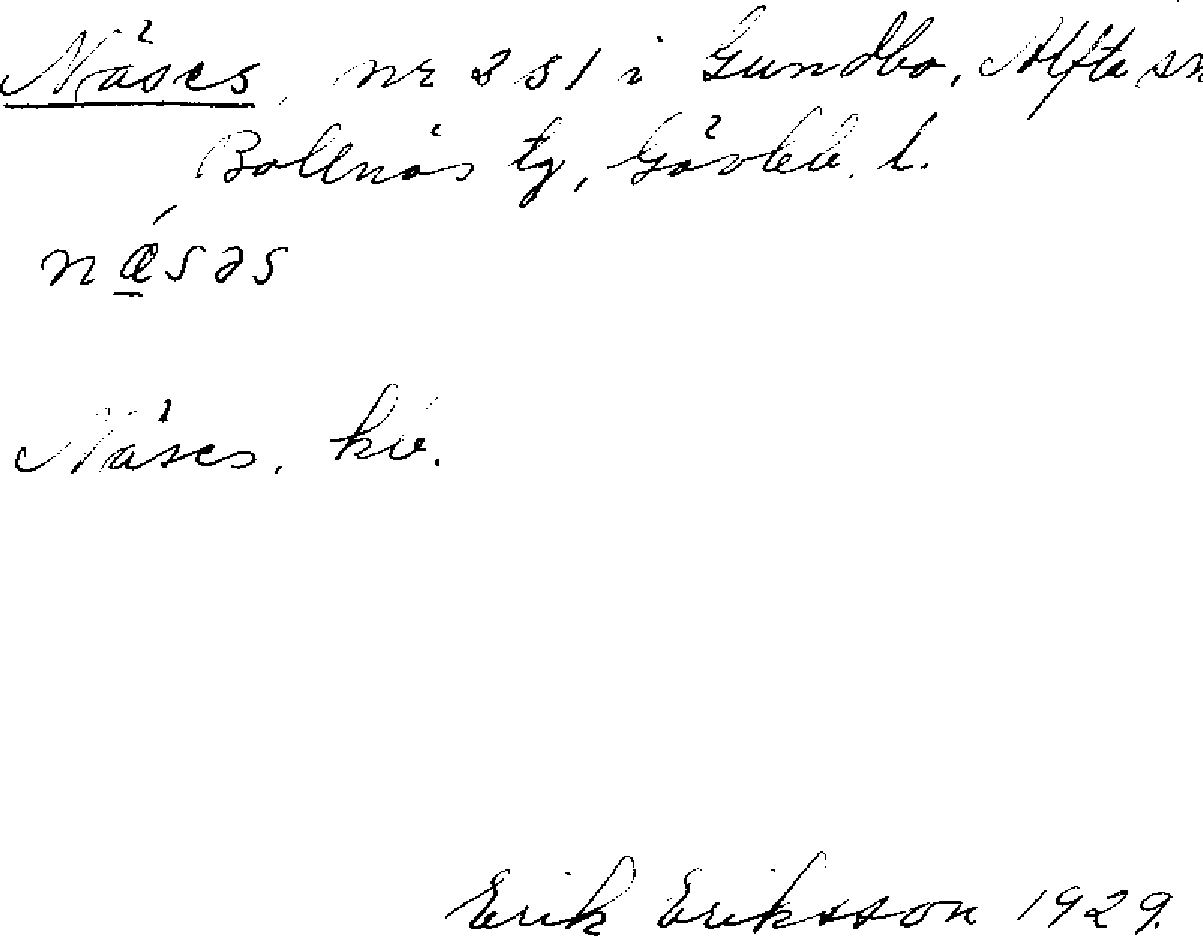 Näses, nr 2 s 1 i Gundbo, Alfta sn
Bollnäs tg, Gävleb. l.
nǽ̲səs
Näses,
Erik Eriksson 1929.